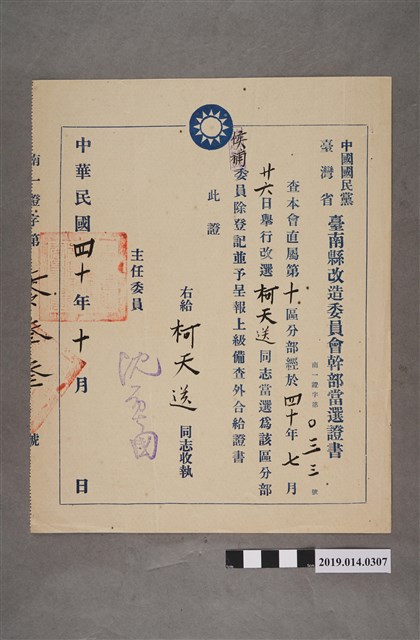 中國國民黨
臺灣省
臺南縣改造委員會幹部當選證書
南一證字第〇三三號
查本會直屬第十區分部經於四十年七月
廿六日舉行改選柯天送同志當選爲該區分部
候補委員除登記並予呈報上級備查外合給證書
此證
右給柯天送同志收執
主任委員
中華民國四十年十月 日
南一證字第
號
2019.014.0307